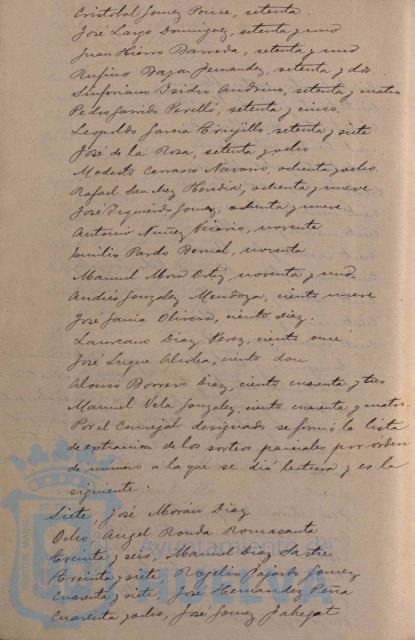 Cristobal Gomez Ponce, setenta.
José Largo Dominguez, setenta y uno
Juan Hierro Barreda, setenta y uno
Rufino Bazan Fernandez, setenta y dos.
Sinforiano Isidro Andrino, setenta y cuatro
Pedro Garrido Perelló, setenta y cinco.
Leopoldo Garcia Trujillo, setenta y siete
José de la Rosa, setenta y ocho
Modesto Carrasco Navarro, ochenta y ocho.
Rafael Sanchez Heredia, ochenta y nueve
José Izquierdo Gomez, ochenta y nueve.
Antonio Nuñez Vicario, noventa
Emilio Pardo Bernal, noventa
Manuel Mora Ortiz, noventa y uno.
Andrés Gonzalez Mendoza, ciento nueve
José Garcia Olivera, ciento diez.
Laureano Diaz Perez, ciento once
José Luque, ciento doce
Alonso Borrero Diaz, ciento cuarenta y tres
Manuel Vela Gonzalez, ciento cuarenta y cuatro.
Por el Concejal designado se formó la lista
de extraccion de los sorteos parciales por orden
de numero a la que se dió lectura y es la
siguiente:
Siete, José Morán Diaz
Ocho, Angel Ronda Romasanta
Treinta y seis, Manuel Diaz Sastre
Treinta y siete, Rogelio Fajardo Gomez
Cuarenta y siete, José Hernandez Peña
Cuarenta y ocho, José Gomez
Ayuntamiento de